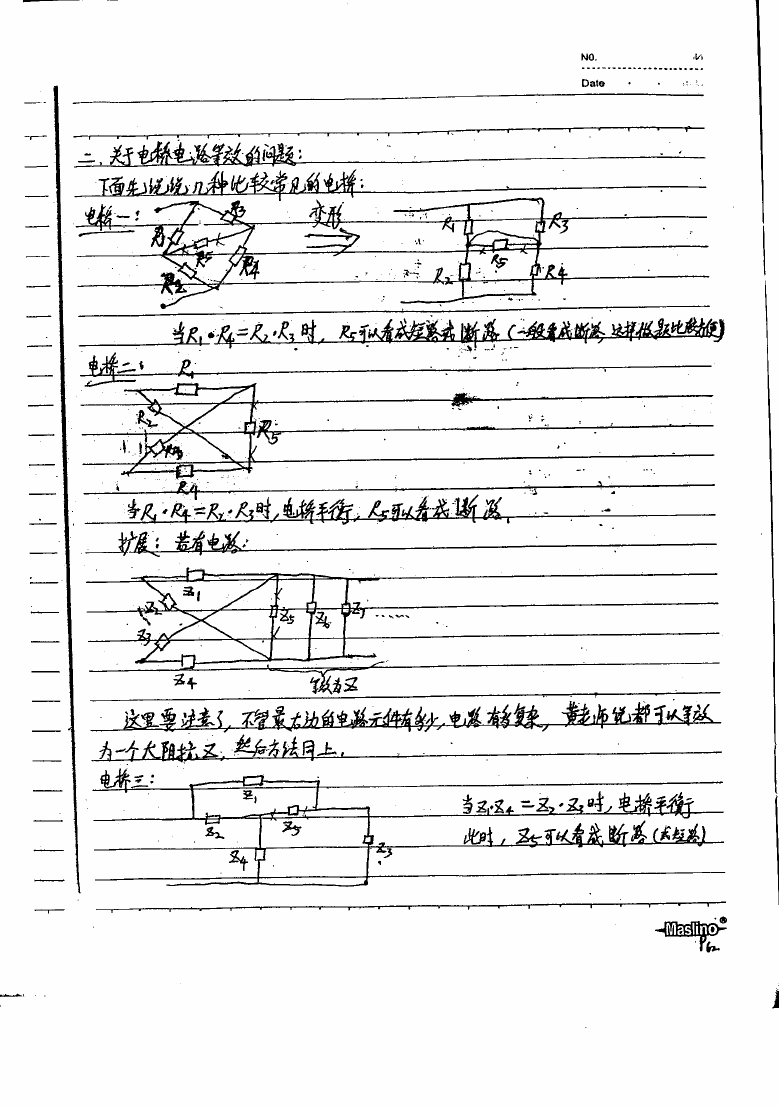 NO.
Date
二、关于电桥电路等效的问题:
下面先说说几种比较常见的电桥:
电桥一:
R3
R1
R5
R2
R4
变形
R1
R3
R5
R2
R4
当R1·R4=R2·R3时, R5可以看成短路或断路 (一般看成断路 这样做题比较方便)
电桥二:
R1
R2
R3
R5
R4
当R1·R4=R2·R3时,电桥平衡, R5可以看成断路.
扩展: 若有电路:
Z1
Z2
Z3
Z5
Z6
Z7
......
Z4
等效为Z
这里要注意了, 不管最右边的电路元件有多少, 电路有多复杂, 黄老师说都可以等效
为一个大阻抗Z, 然后方法同上.
电桥三:
Z1
Z2
Z5
Z4
Z3
当Z1·Z4=Z2·Z3时, 电桥平衡
此时, Z5可以看成断路(或短路)
Maslino®
P62